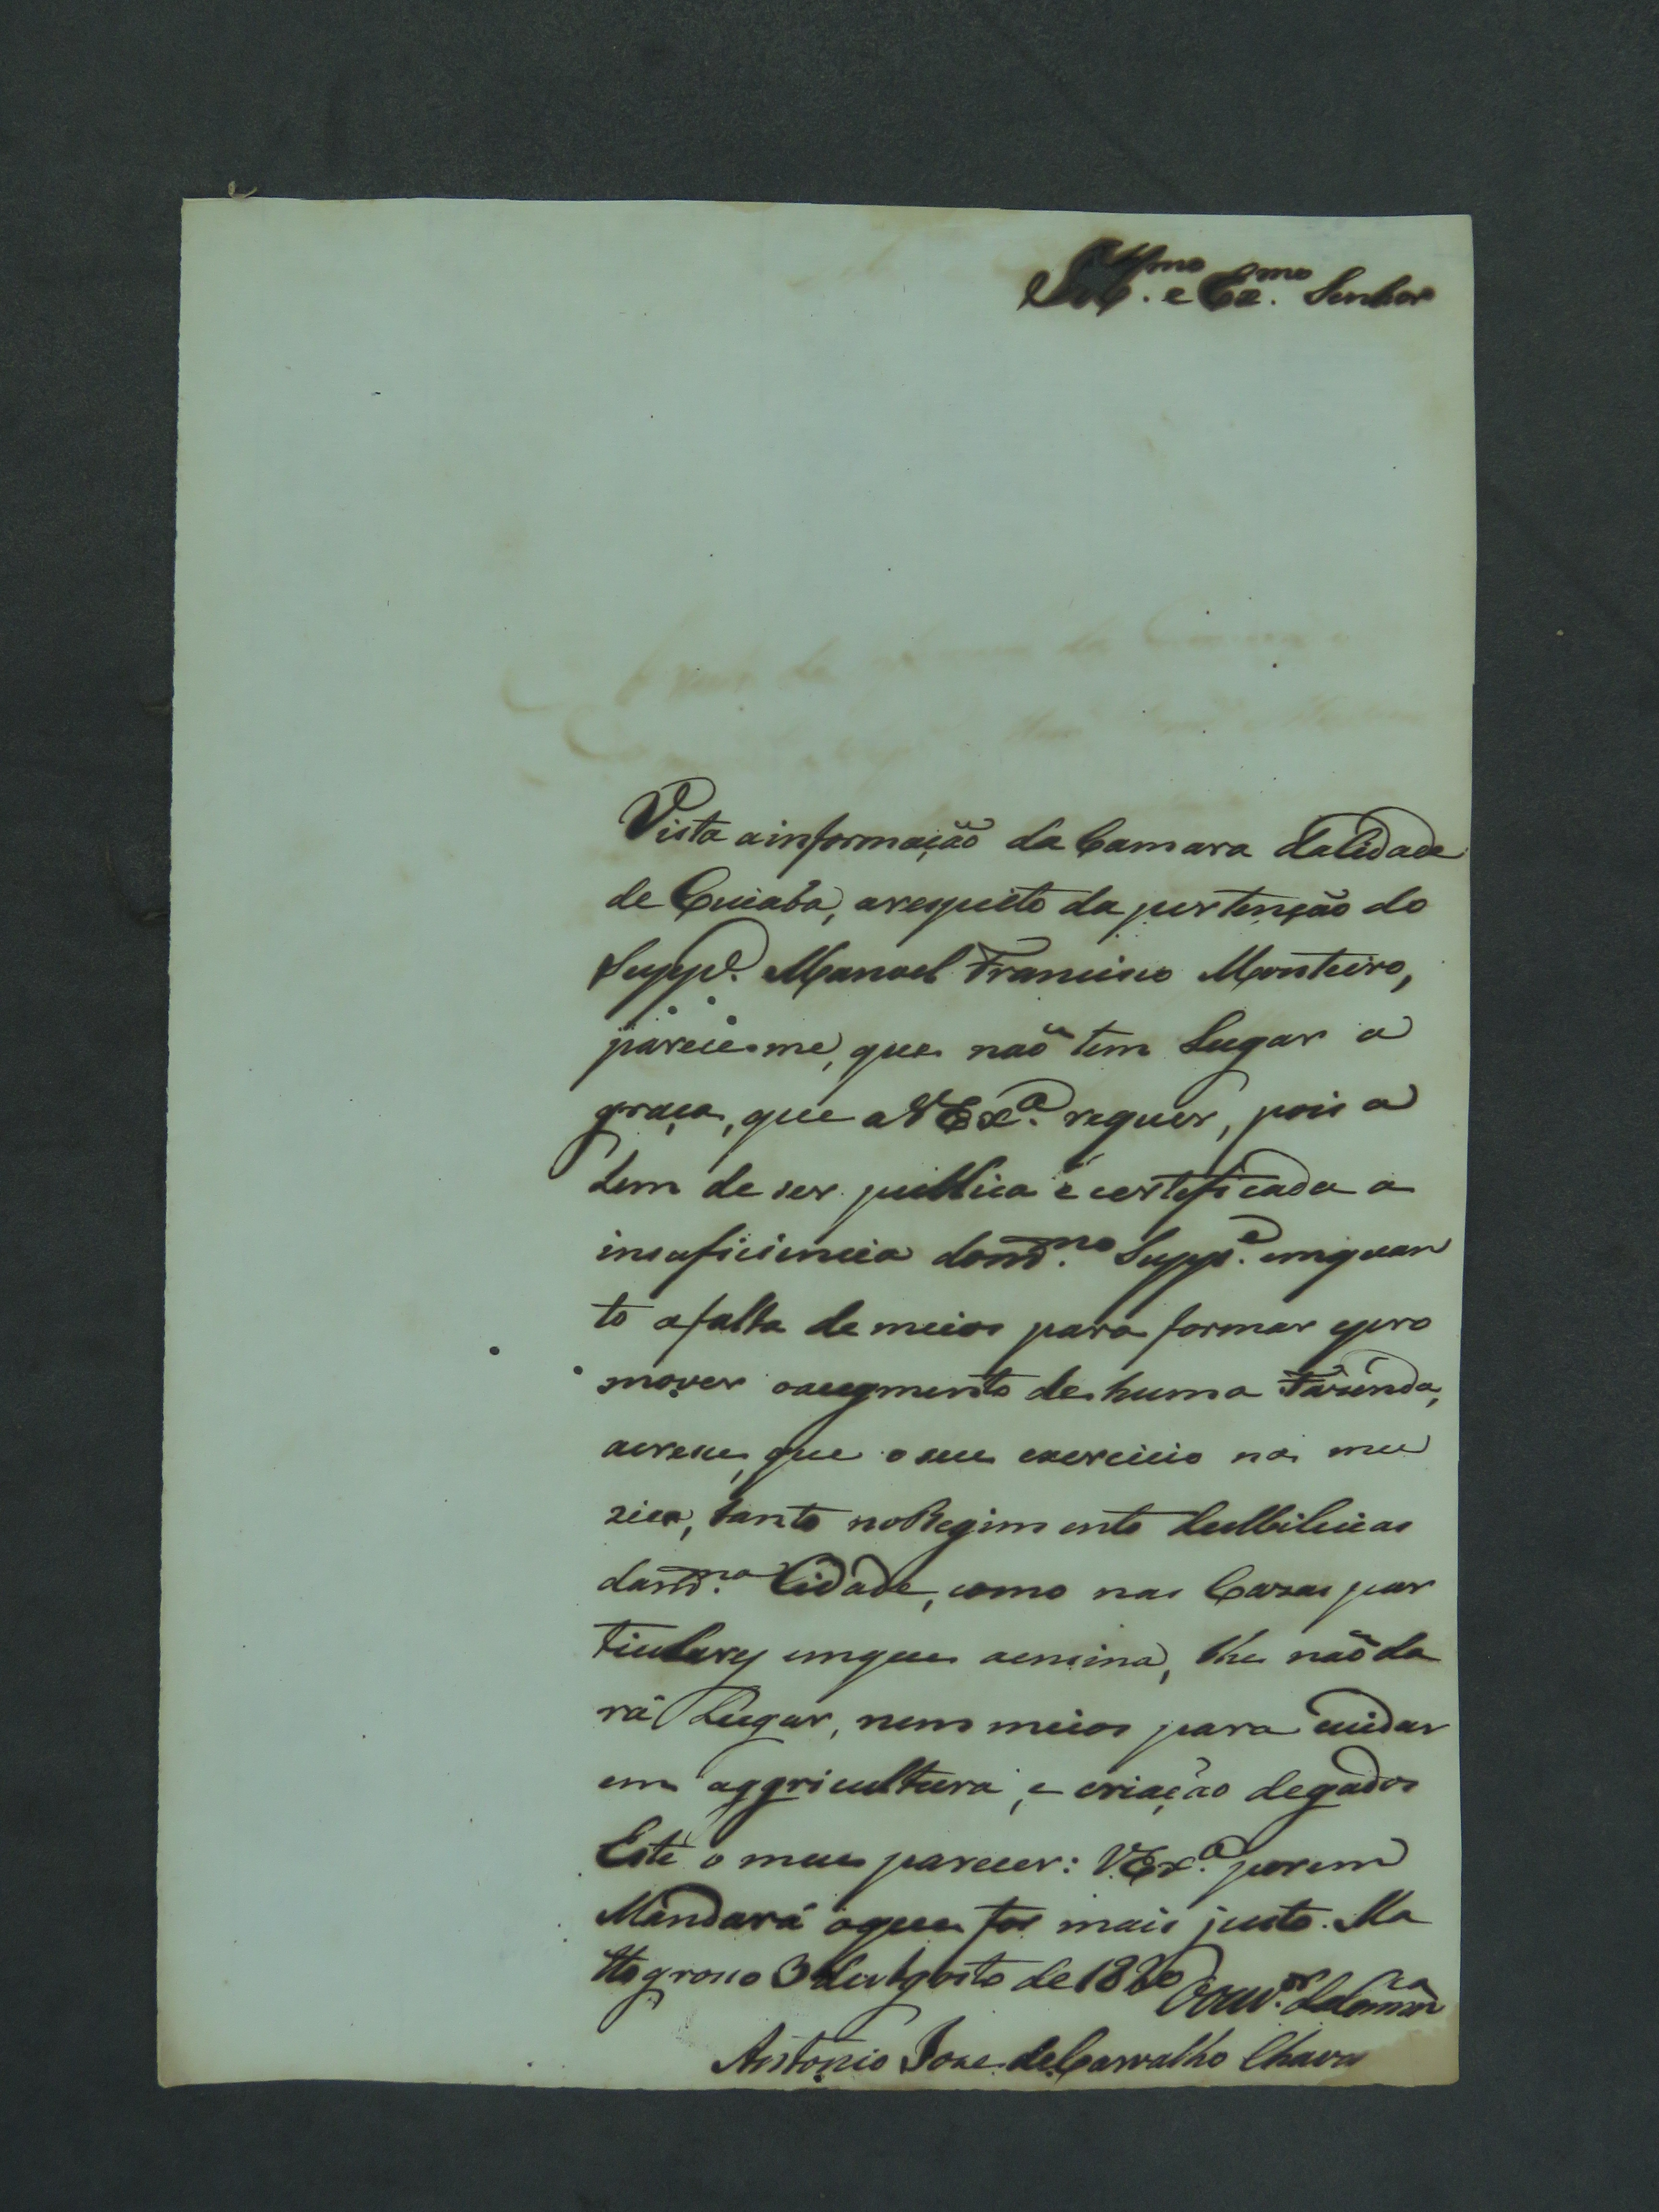 Illmo. e Exmo. Senhor
Vista ainformação da Camara daCidade
de Cuiabá, arespeito da pertenção do
Suppe. Manoel Francisco Monteiro,
pareceme, que naõ tem Lugar a
graça, que a VExa. requer, pois a
lem de ser publica e certeficada a
insuficiencia domo. Suppe. emquan
to afalta de meios para formar epro
mover oaugmento de huma Fazenda,
acresce, que o seu exercicio na mu
zica, tanto noRegimento deMilicias
dama. Cidade, como nas Cazas par
ticulares emque aensina, lhe naõ da
rá Lugar, nem meios para cuidar
em aggricultura, e criação degados
Esté o meu parecer: VExa. porem
Mandará oque for mais justo. Ma
ttogrosso 3 deAgosto de 1820
Ouvor. daComca
Antonio Joze deCarvalho Chaves